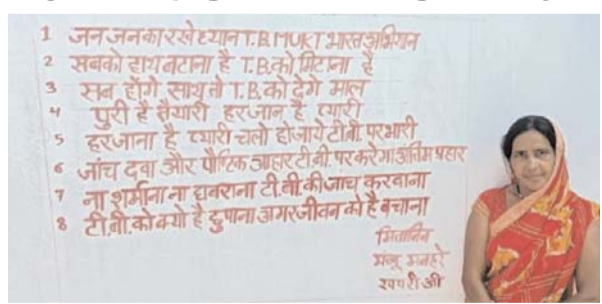 1 जन जन का रखे ध्यान T.B. MUKT भारत अभियान
2 सबको हाथ बटाना है T.B. को मिटाना है
3 सब होंगे साथ तो T.B. को देंगे मात
4 पुरी है तैयारी हर जान है प्यारी
5 हर जाना है प्यारी चलो हो जाये टी.बी. पर भारी
6 जांच दवा और पौष्टिक आहार टी.बी. पर करेगा अंतिम प्रहार
7 ना शर्माना ना घबराना टी.बी. की जांच करवाना
8 टी.बी. को क्यो है छुपाना अगर जीवन को है बचाना
मितानिन
मंजू मनहरे
खपरी जी